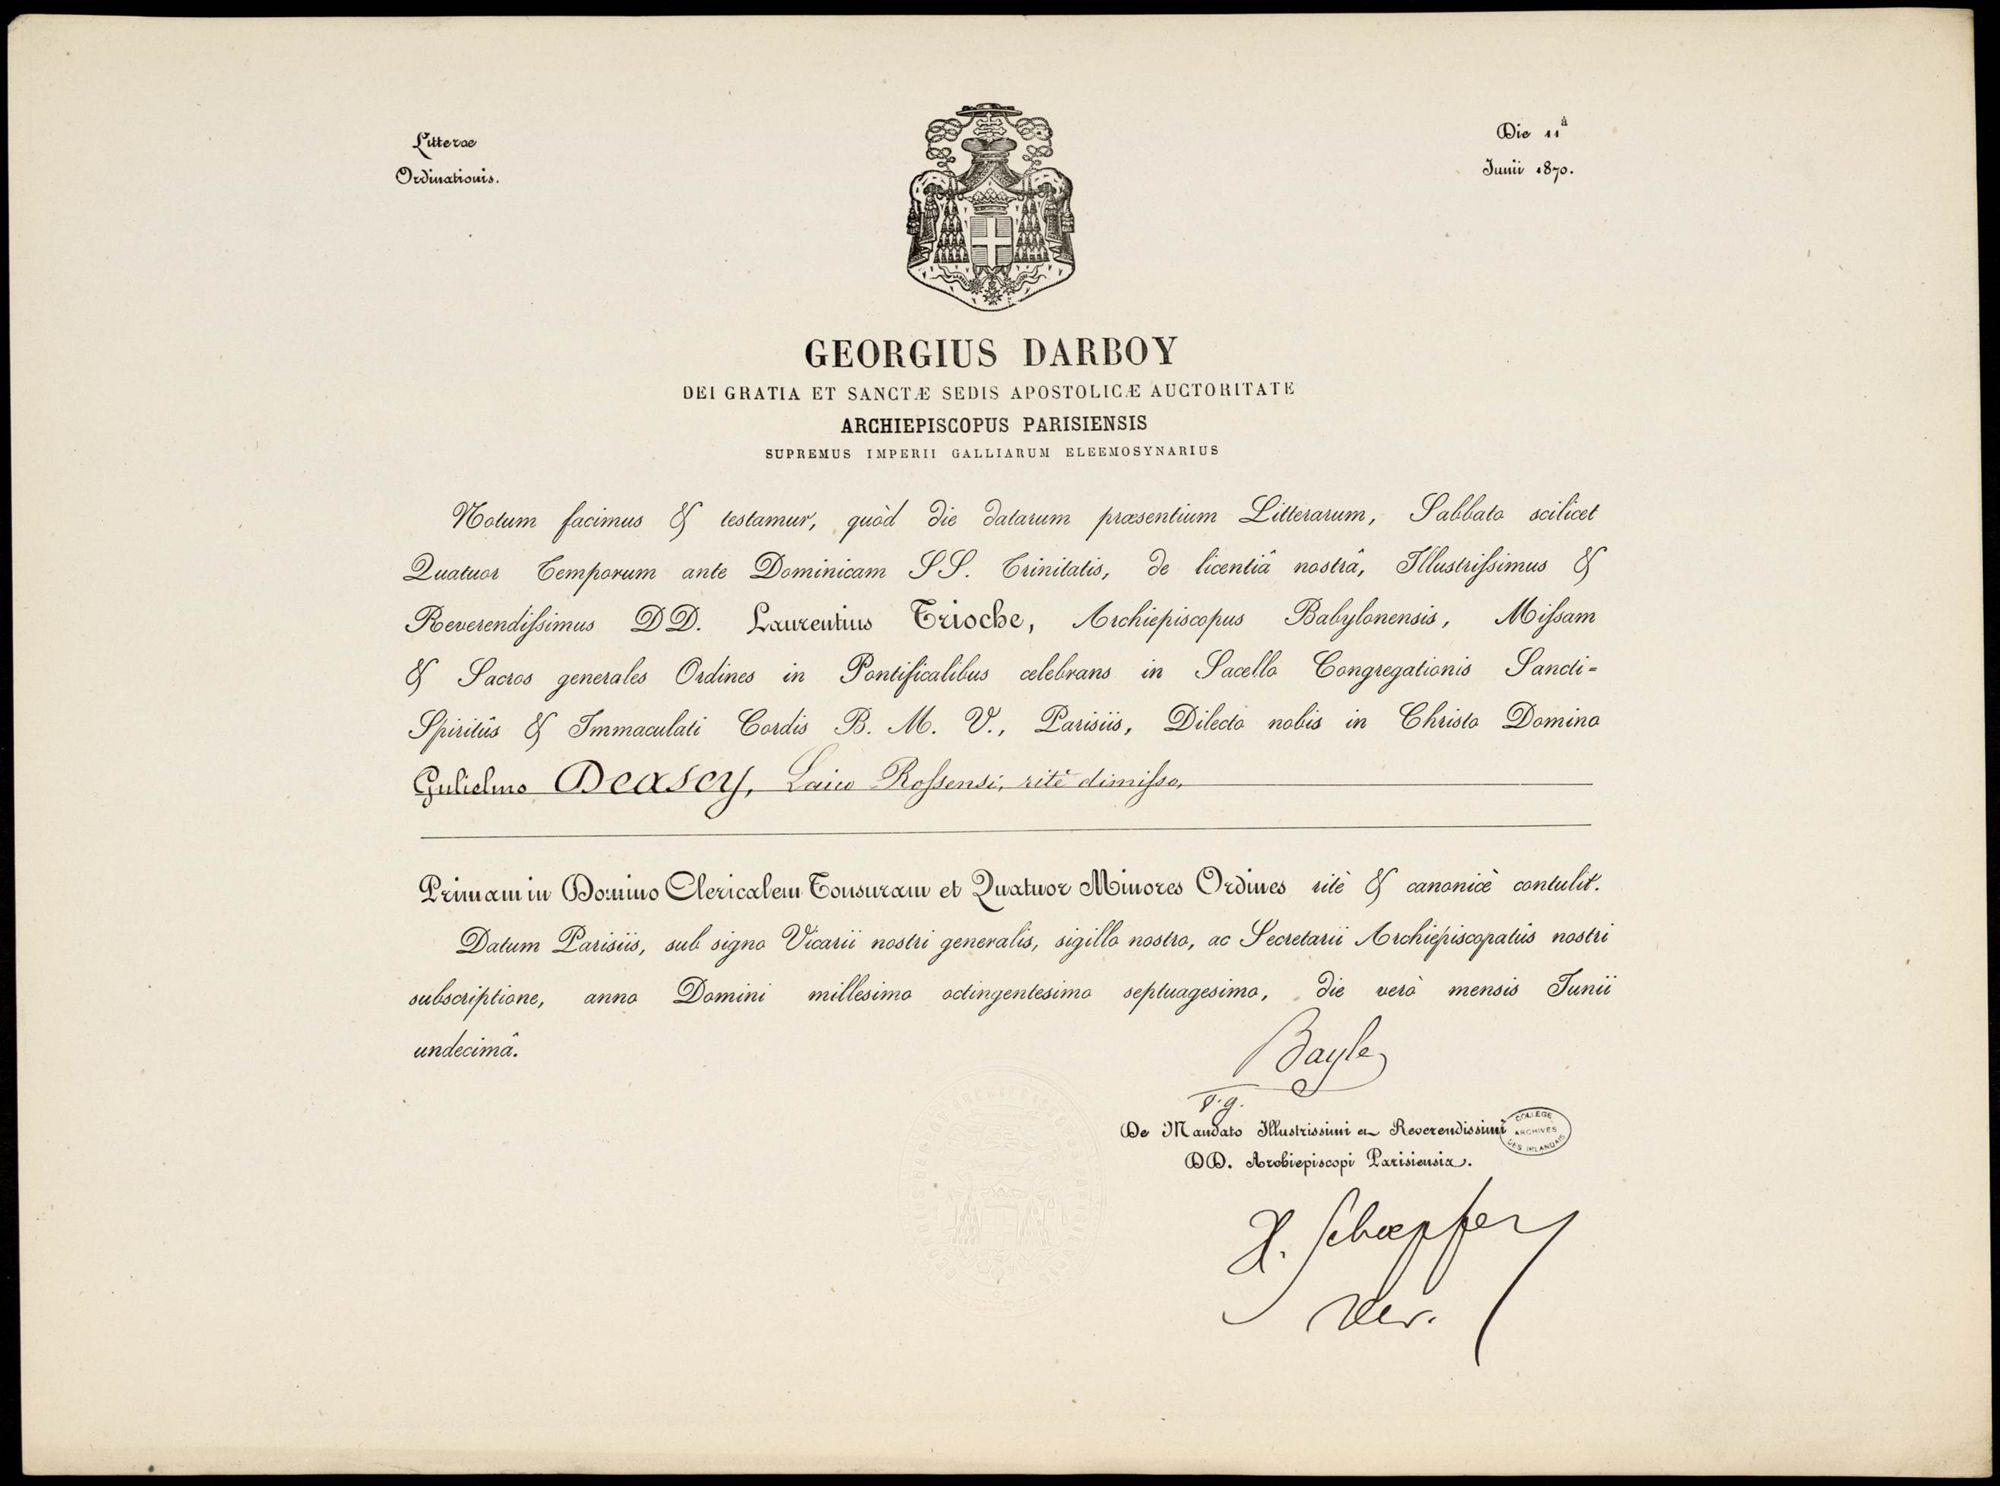 Litterae
Ordinationis.
Die 11ª
Junii 1870.
GEORGIUS DARBOY
DEI GRATIA ET SANCTÆ SEDIS APOSTOLICÆ AUCTORITATE
ARCHIEPISCOPUS PARISIENSIS
SUPREMUS IMPERII GALLIARUM ELEEMOSYNARIUS
Notum facimus & testamur, quòd die datarum præsentium Litterarum, Sabbato scilicet
Quatuor Temporum ante Dominicam SS. Trinitatis, de licentiâ nostrâ, Illustrissimus &
Reverendissimus DD. Laurentius Trioche, Archiepiscopus Babylonensis, Missam
& Sacros generales Ordines in Pontificalibus celebrans in Sacello Congregationis Sancti=
Spiritûs & Immaculati Cordis B. M. V., Parisiis, Dilecto nobis in Christo Domino
Gulielmo Deasey, Laico Rossensi, ritè dimisso,
Primam in Domino Clericalem Tonsuram et Quatuor Minores Ordines ritè & canonicè contulit.
Datum Parisiis, sub signo Vicarii nostri generalis, sigillo nostro, ac Secretarii Archiepiscopatûs nostri
subscriptione, anno Domini millesimo octingentesimo septuagesimo, die verò mensis Junii
undecimâ.
Bayle
v. g.
De Mandato Illustrissimi et Reverendissimi
DD. Archiepiscopi Parisiensis.
COLLEGE
ARCHIVES
DES IRLANDAIS
Schoepfer